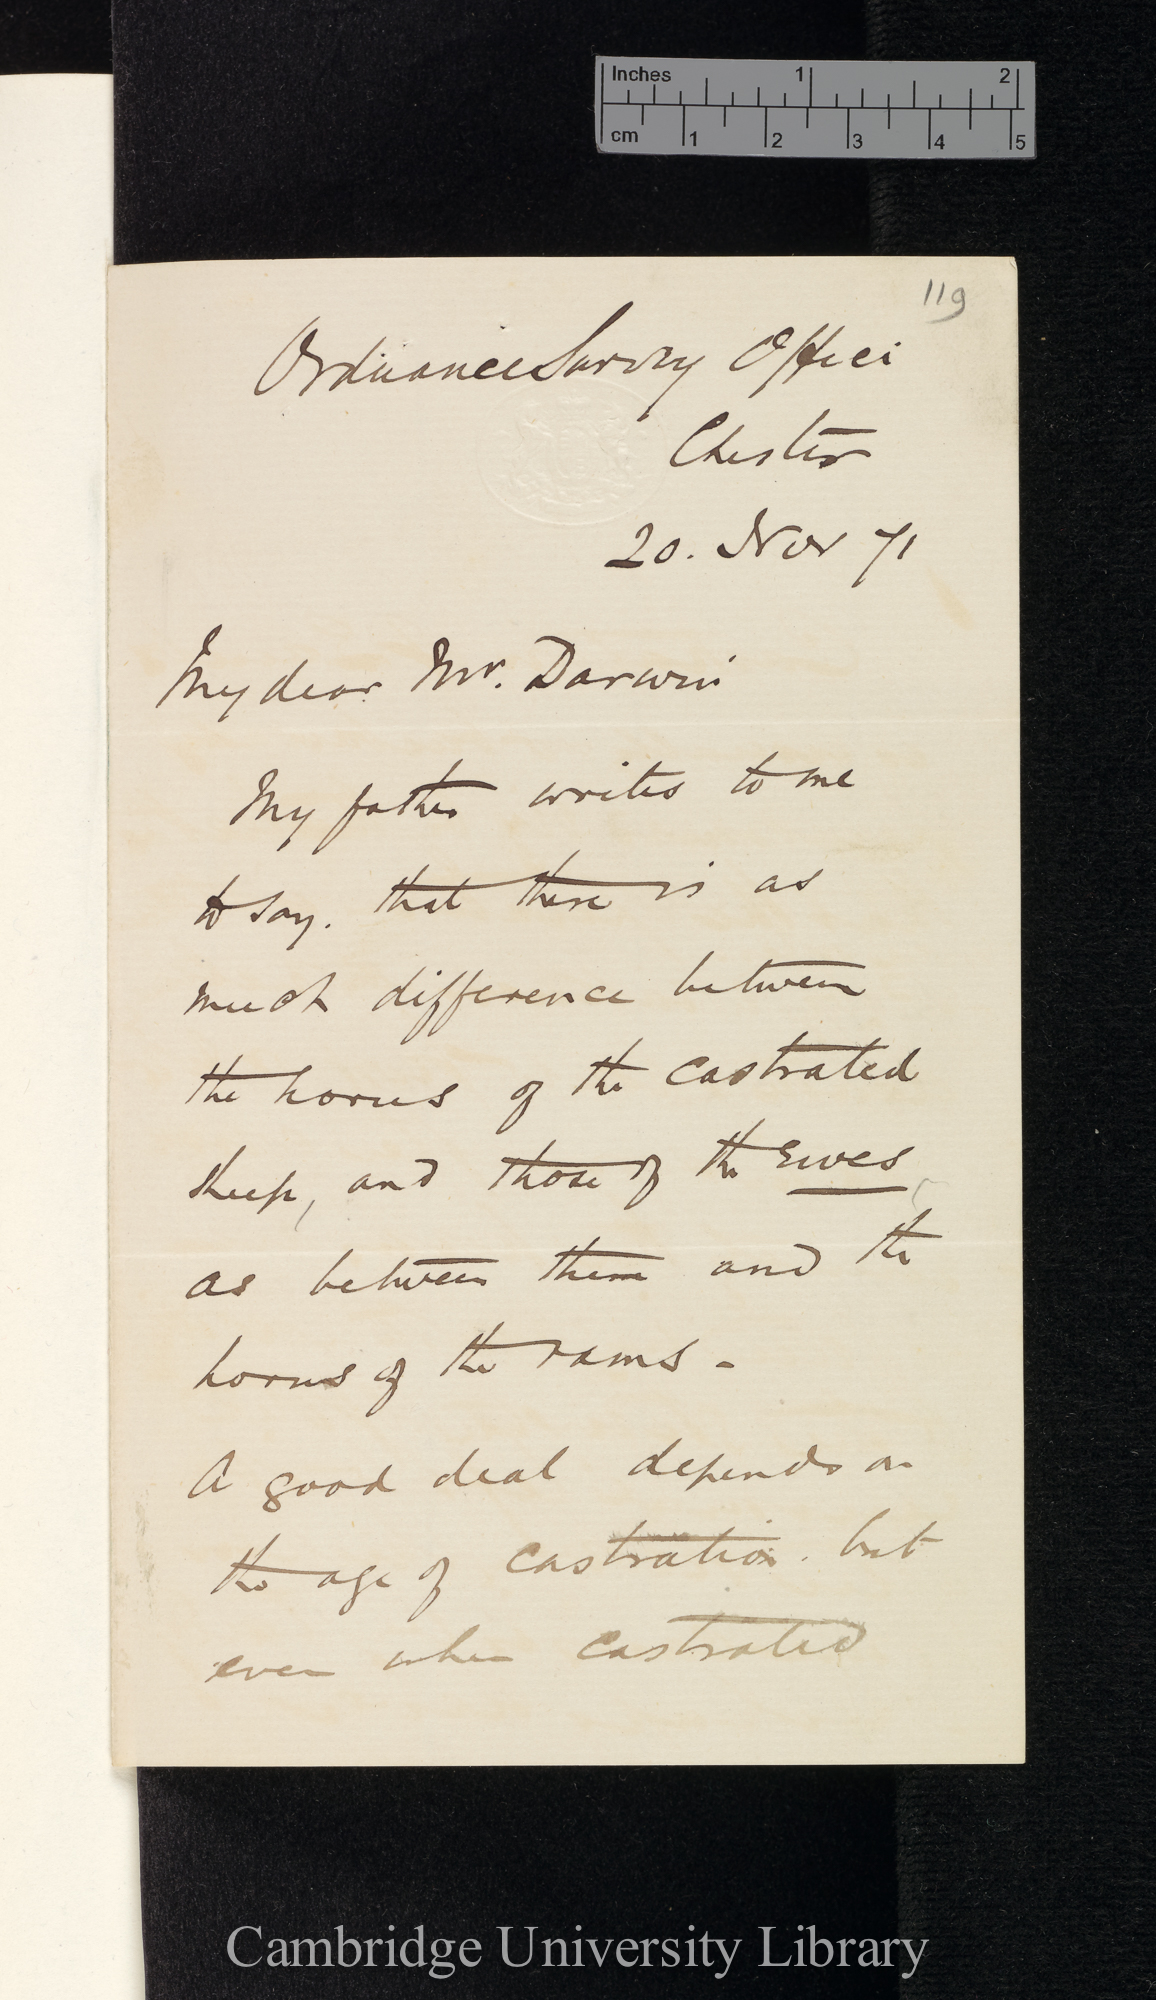 Inches 1 2
cm 1 2 3 4 5
119
Ordnance Survey Office
Chester
20. Nov 71
My dear Mr. Darwin
My father writes to me
to say. that there is as
much difference between
the horns of the castrated
sheep, and those of the ewes,
as between them and the
horns of the rams -
A good deal depends on
the age of castration. but
even when castrated
Cambridge University Library